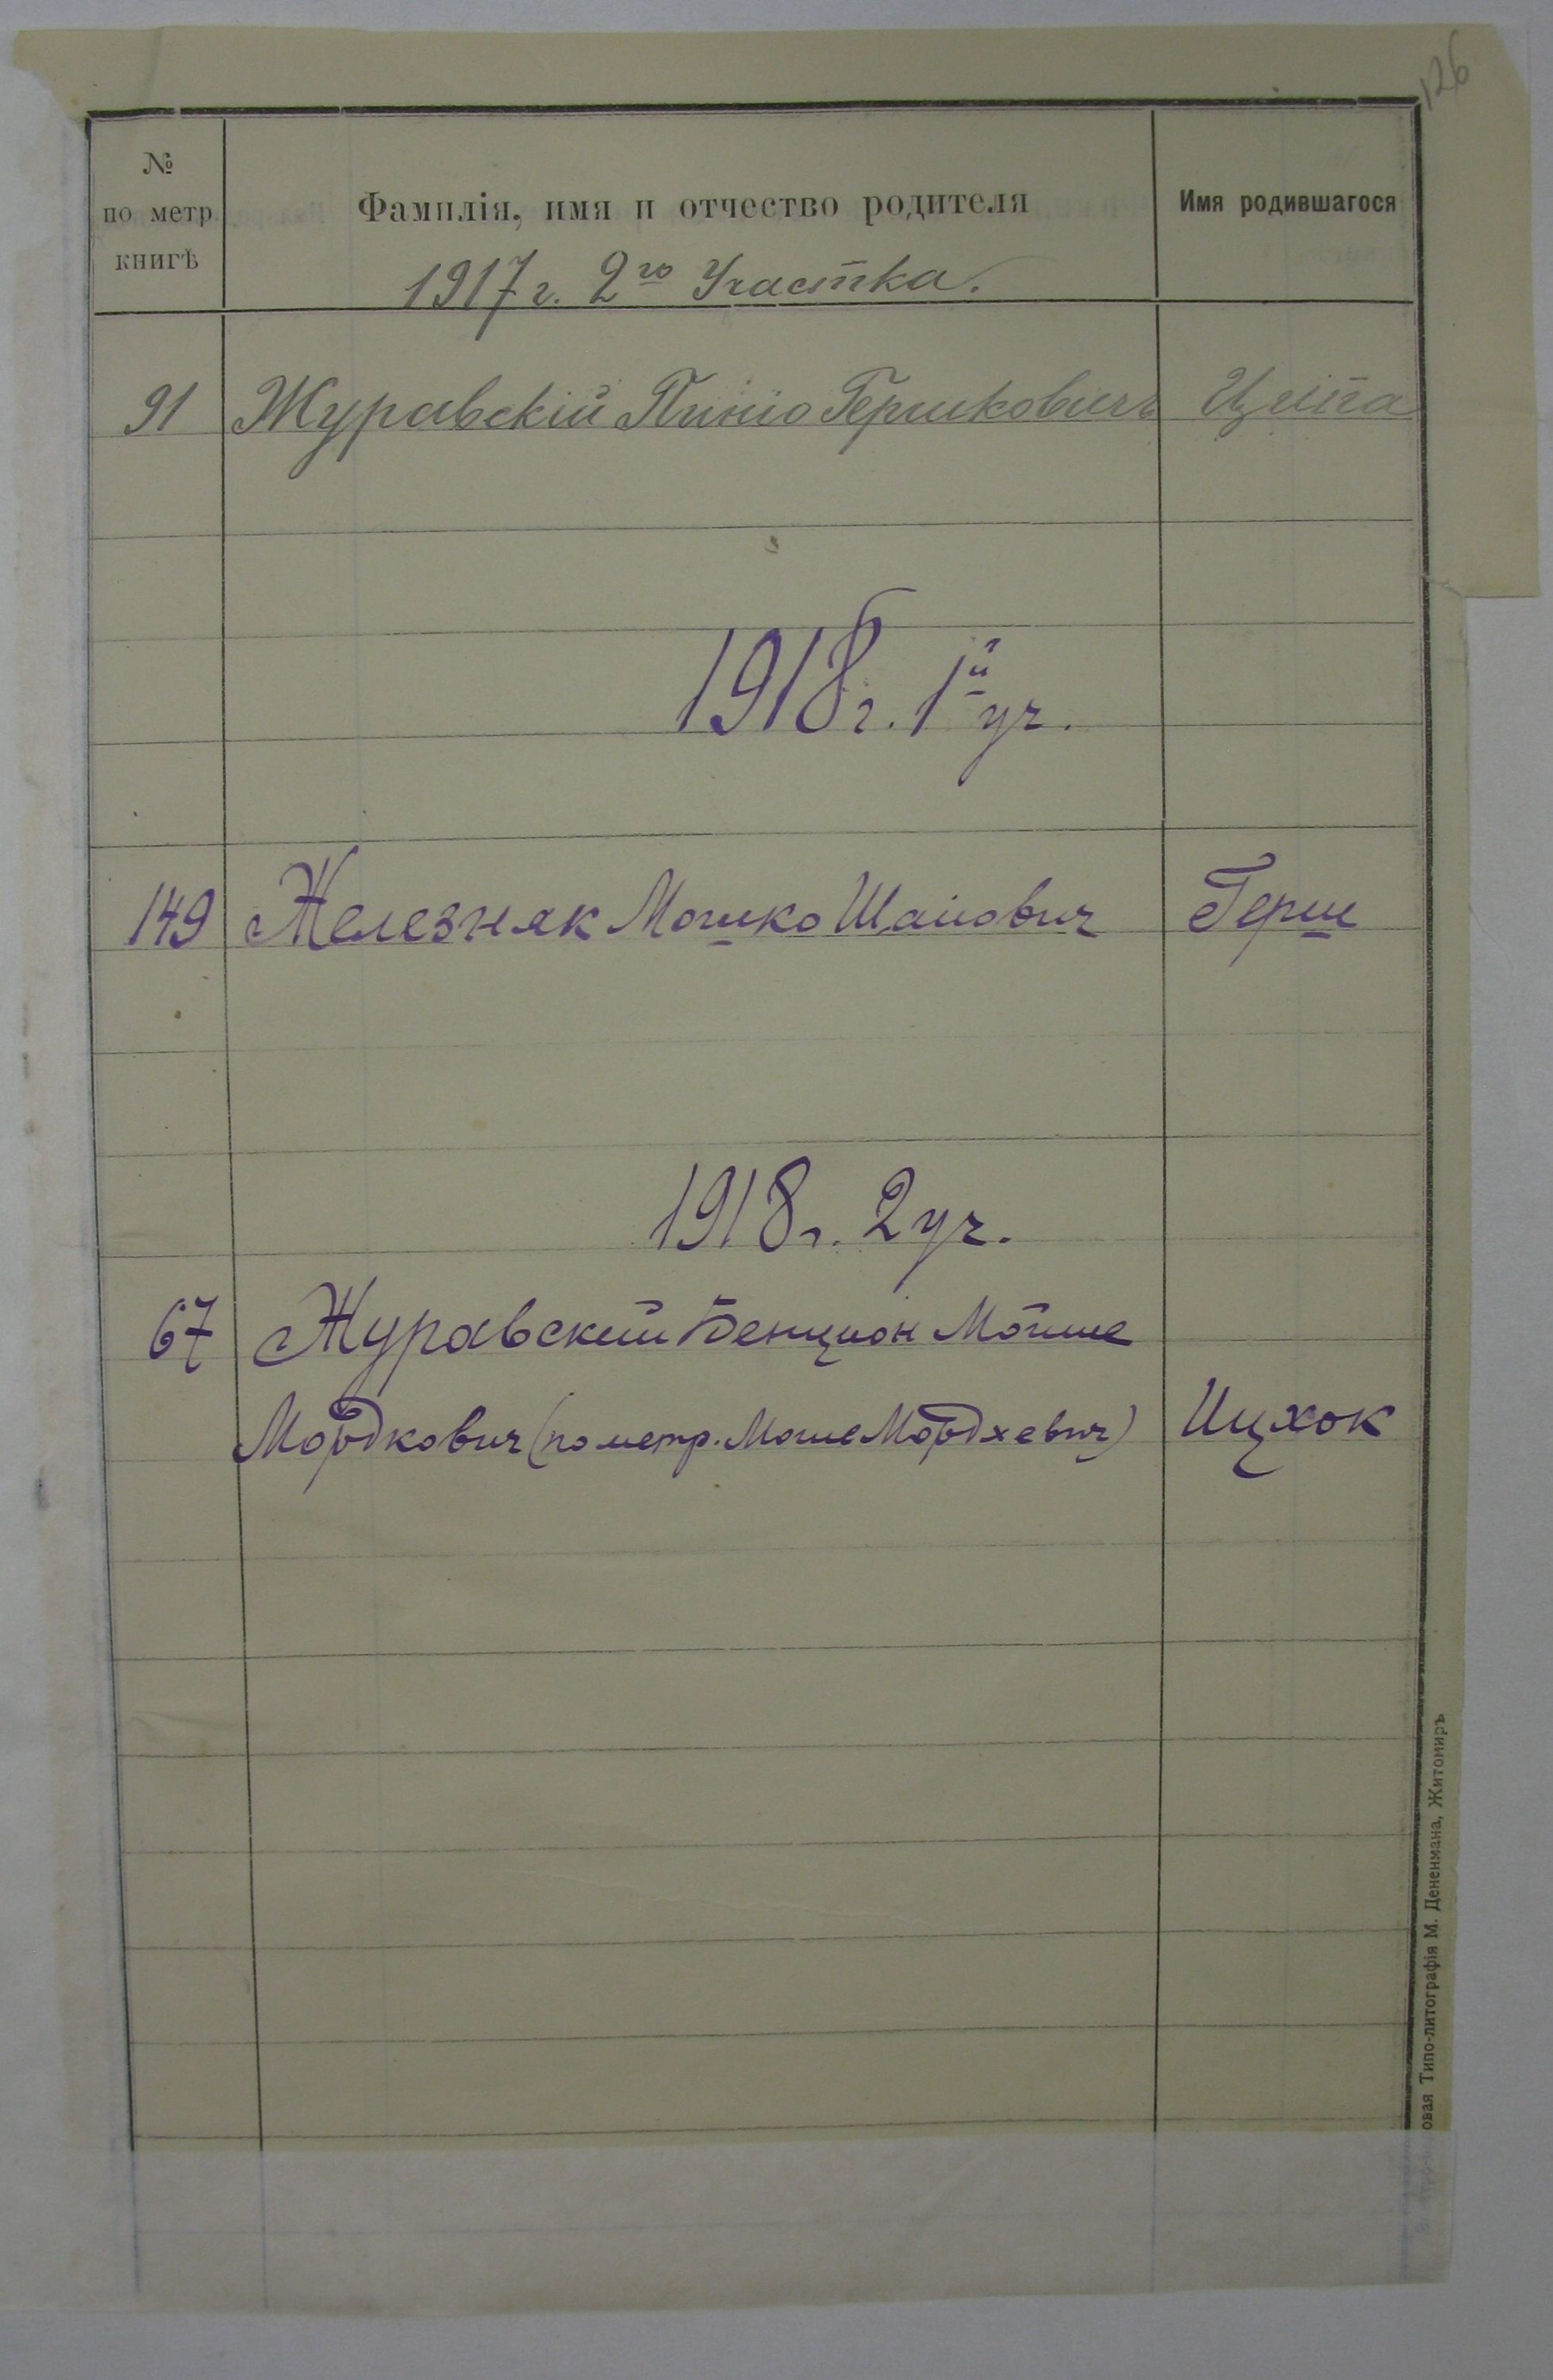 126
№ по метр книгѣ
Фамилія, имя и отчество родителя
Имя родившагося
1917 г. 2го Участка.
91 Журавскій Пиніо Гершковичъ Ципа
1918 г. 1й уч.
149 Железняк Мошко Шайович Герш
1918 г. 2 уч.
67 Журавский Бенцион Мойше
Мордкович (по метр. Моше Мордхевич) Ицхок
овая Типо-литографія М. Дененмана, Житомиръ